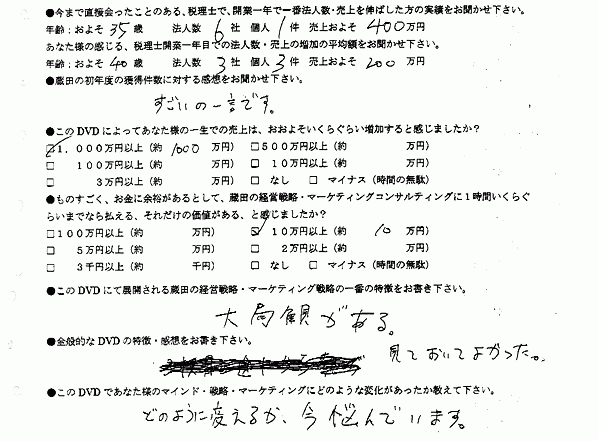 ●今まで直接会ったことのある、税理士で、開業一年で一番法人数・売上を伸ばした方の実績をお聞かせ下さい。
年齢：およそ 35 歳　法人数 6 社　個人 1 件　売上およそ 400 万円
あなた様の感じる、税理士開業一年目での法人数・売上の増加の平均額をお聞かせ下さい。
年齢：およそ 40 歳　法人数 3 社　個人 3 件　売上およそ 200 万円
●蔵田の初年度の獲得件数に対する感想をお聞かせ下さい。
すごいの一言です。
●このDVDによってあなた様の一生での売上は、おおよそいくらぐらい増加すると感じましたか？
☑1,000万円以上（約 1000 万円）□500万円以上（約　　　万円）
□　100万円以上（約　　　万円）□　10万円以上（約　　　万円）
□　　3万円以上（約　　　万円）□　なし　□　マイナス（時間の無駄）
●ものすごく、お金に余裕があるとして、蔵田の経営戦略・マーケティングコンサルティングに１時間いくらぐ
らいまでなら払える、それだけの価値がある、と感じましたか？
□100万円以上（約　　　万円）☑10万円以上（約 10 万円）
□　5万円以上（約　　　万円）□　2万円以上（約　　　万円）
□　3千円以上（約　　　千円）□　なし　□　マイナス（時間の無駄）
●このDVDにて展開される蔵田の経営戦略・マーケティング戦略の一番の特徴をお書き下さい。
大局観がある。
●全般的なDVDの特徴・感想をお書き下さい。
見ておいてよかった。
●このDVDであなた様のマインド・戦略・マーケティングにどのような変化があったか教えて下さい。
どのように変えるか、今悩んでいます。